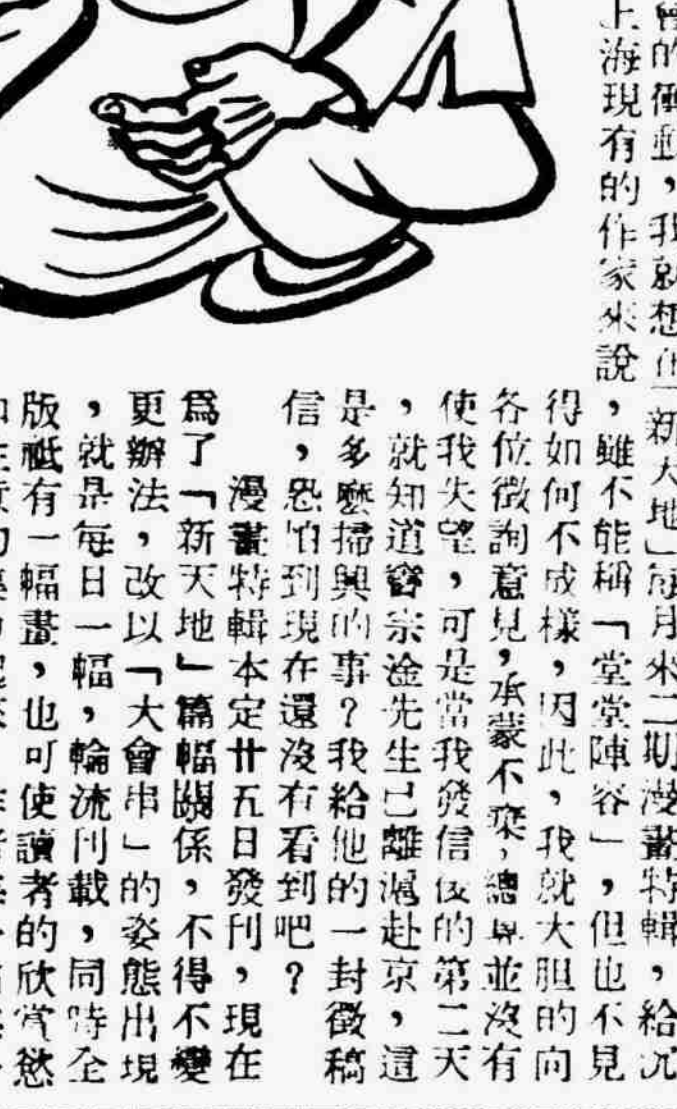 的衝動,我就想在「新大地」每月來二期漫畫特輯,給
上海現有的作家來說,雖不能稱「堂堂陣容」,但也不見
得如何不成樣,因此,我就大胆的向
各位徵詢意見,承蒙不棄,總算並沒有
使我失望,可是當我發信後的第二天
,就知道竇宗淦先生已離滬赴京,這
是多麼掃興的事?我給他的一封徵稿
信,恐怕到現在還沒有看到吧?
漫畫特輯本定廿五日發刊,現在
爲了「新天地」篇幅關係,不得不變
更辦法,改以「大會串」的姿態出現
,就是每日一幅,輪流刊載,同時全
版祗有一幅畫,也可使讀者的欣賞慾